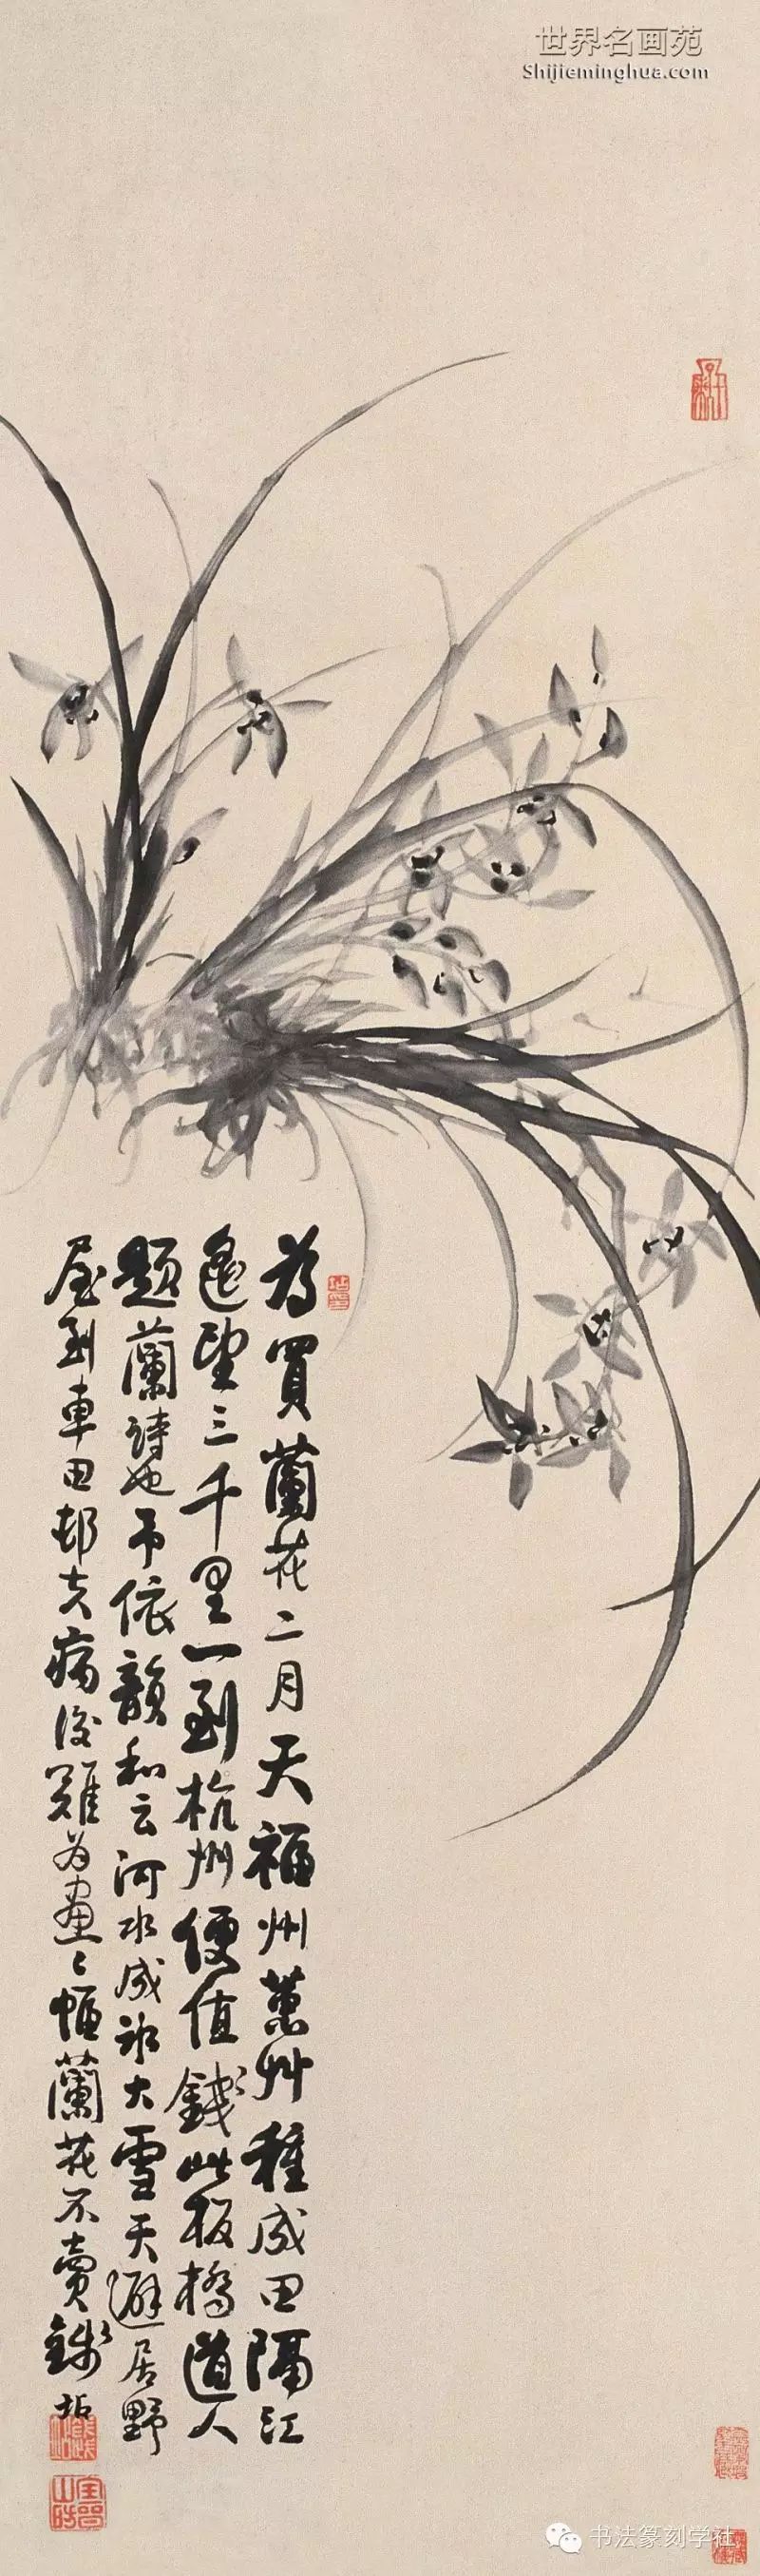 世界名画苑
Shijieminghua.com
為買蘭花二月天福州蕙艸種成田隔江
遙望三千里一到杭州便值錢此板橋道人
題蘭詩也予依韻和云河水成冰大雪天避居野
屋車田邨病後難為畫〻幅蘭花不賣錢坫
书法篆刻学社